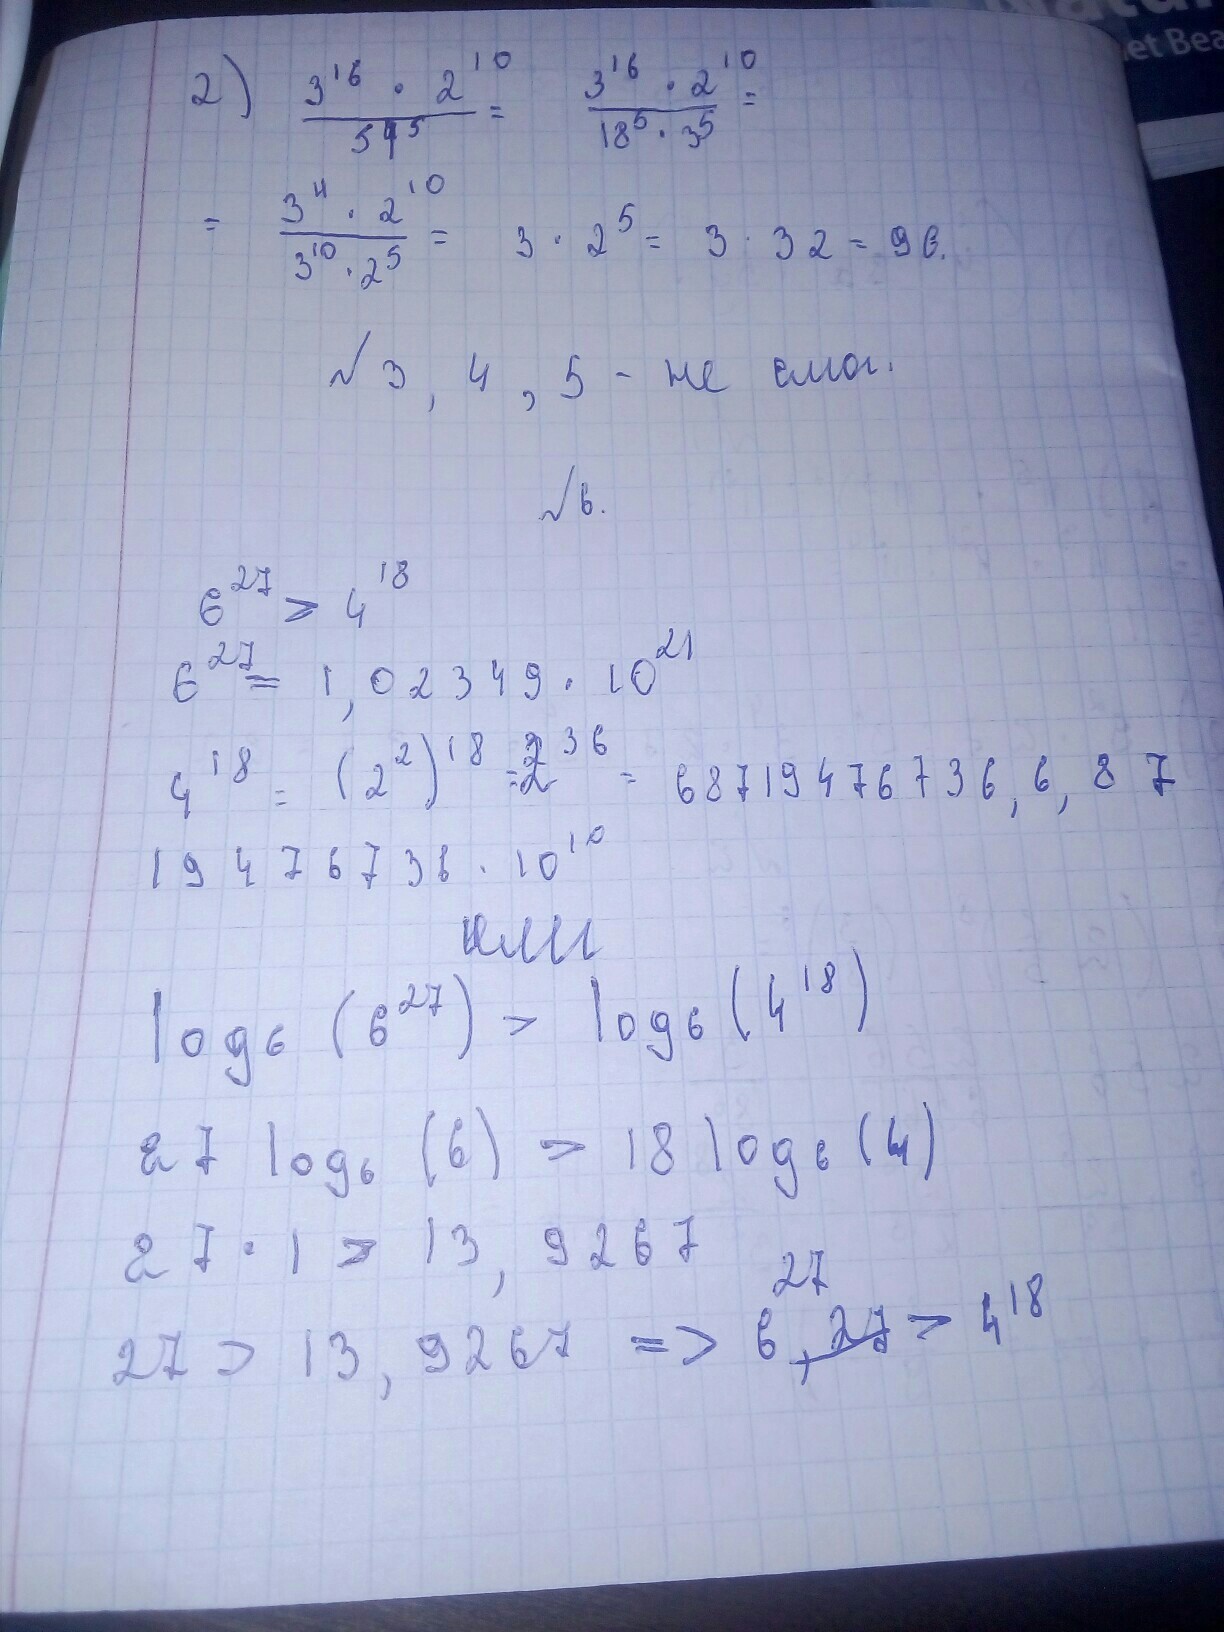 et Bea
2) 3^16 · 2^10 / 54^5 = 3^16 · 2^10 / 18^5 · 3^5 =
= 3^4 · 2^10 / 3^10 · 2^5 = 3 · 2^5 = 3 · 32 = 96.
№3, 4, 5 - не смог.
№6.
6^27 > 4^18
6^27 = 1,02349 · 10^21
4^18 = (2^2)^18 = 2^36 = 68719476736,6,87
19476736 · 10^10
или
log6 (6^27) > log6 (4^18)
27 log6 (6) > 18 log6 (4)
27 · 1 > 13,9267
27 > 13,9267 => 6^27 > 4^18